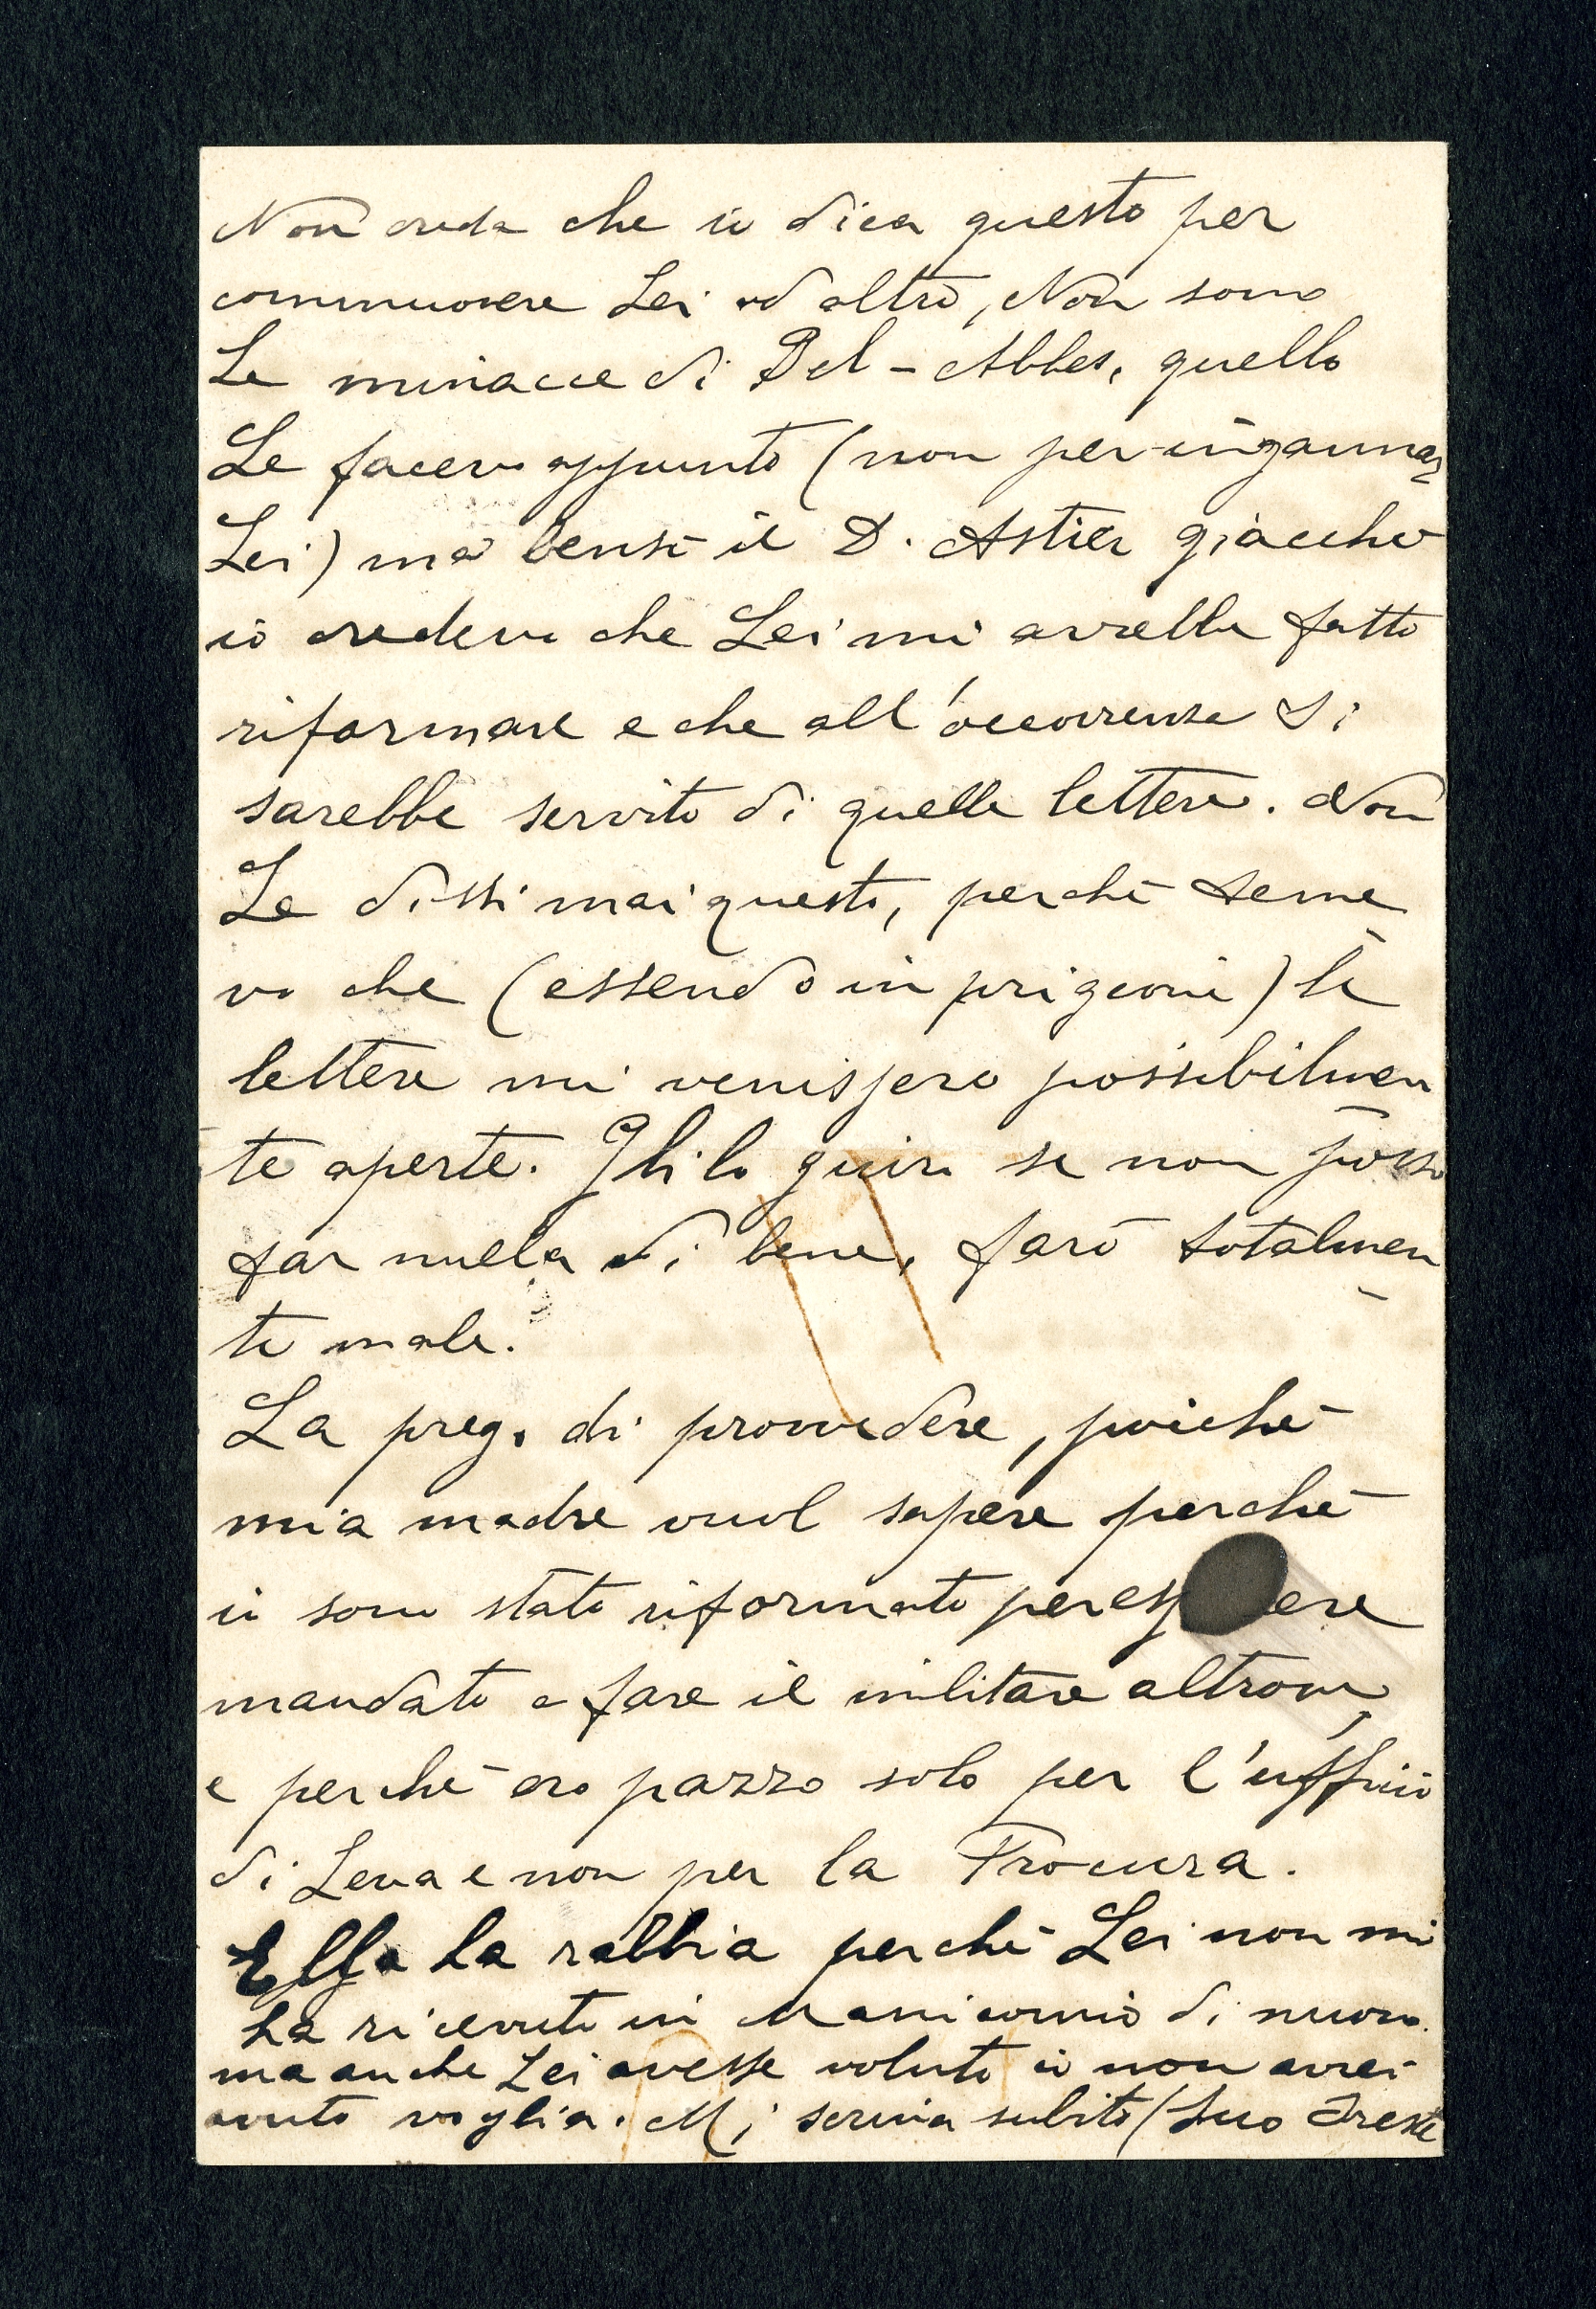 Non creda che io dica questo per
commuovere Lei od altro, Non sono
Le minacce di Bel-Abbes, quello
Le facevo appunto (non per ingannar
Lei) ma bensì il D. Astier giacchè
io credevo che Lei mi avrebbe fatto
riformare e che all'occorrenza si
sarebbe servito di quelle lettere. Non
Le dissi mai questo, perchè teme
vo che (essendo in prigione) le
lettere mi venissero possibilmen
te aperte. Gli lo giuro se non posso
far nulla di bene, farò totalmen
te male.
La preg. di provvedere, poichè
mia madre vuol sapere perchè
io sono stato riformato per ess ere
mandato a fare il militare altrove
e perchè ero pazzo solo per l'ufficio
di Leva e non per la Procura.
Essa ha rabbia perchè Lei non mi
ha ricevuto in Manicomio di nuovo.
ma anche Lei avesse voluto io non avrei
avuto voglia. Mi scriva subito (Suo Oreste